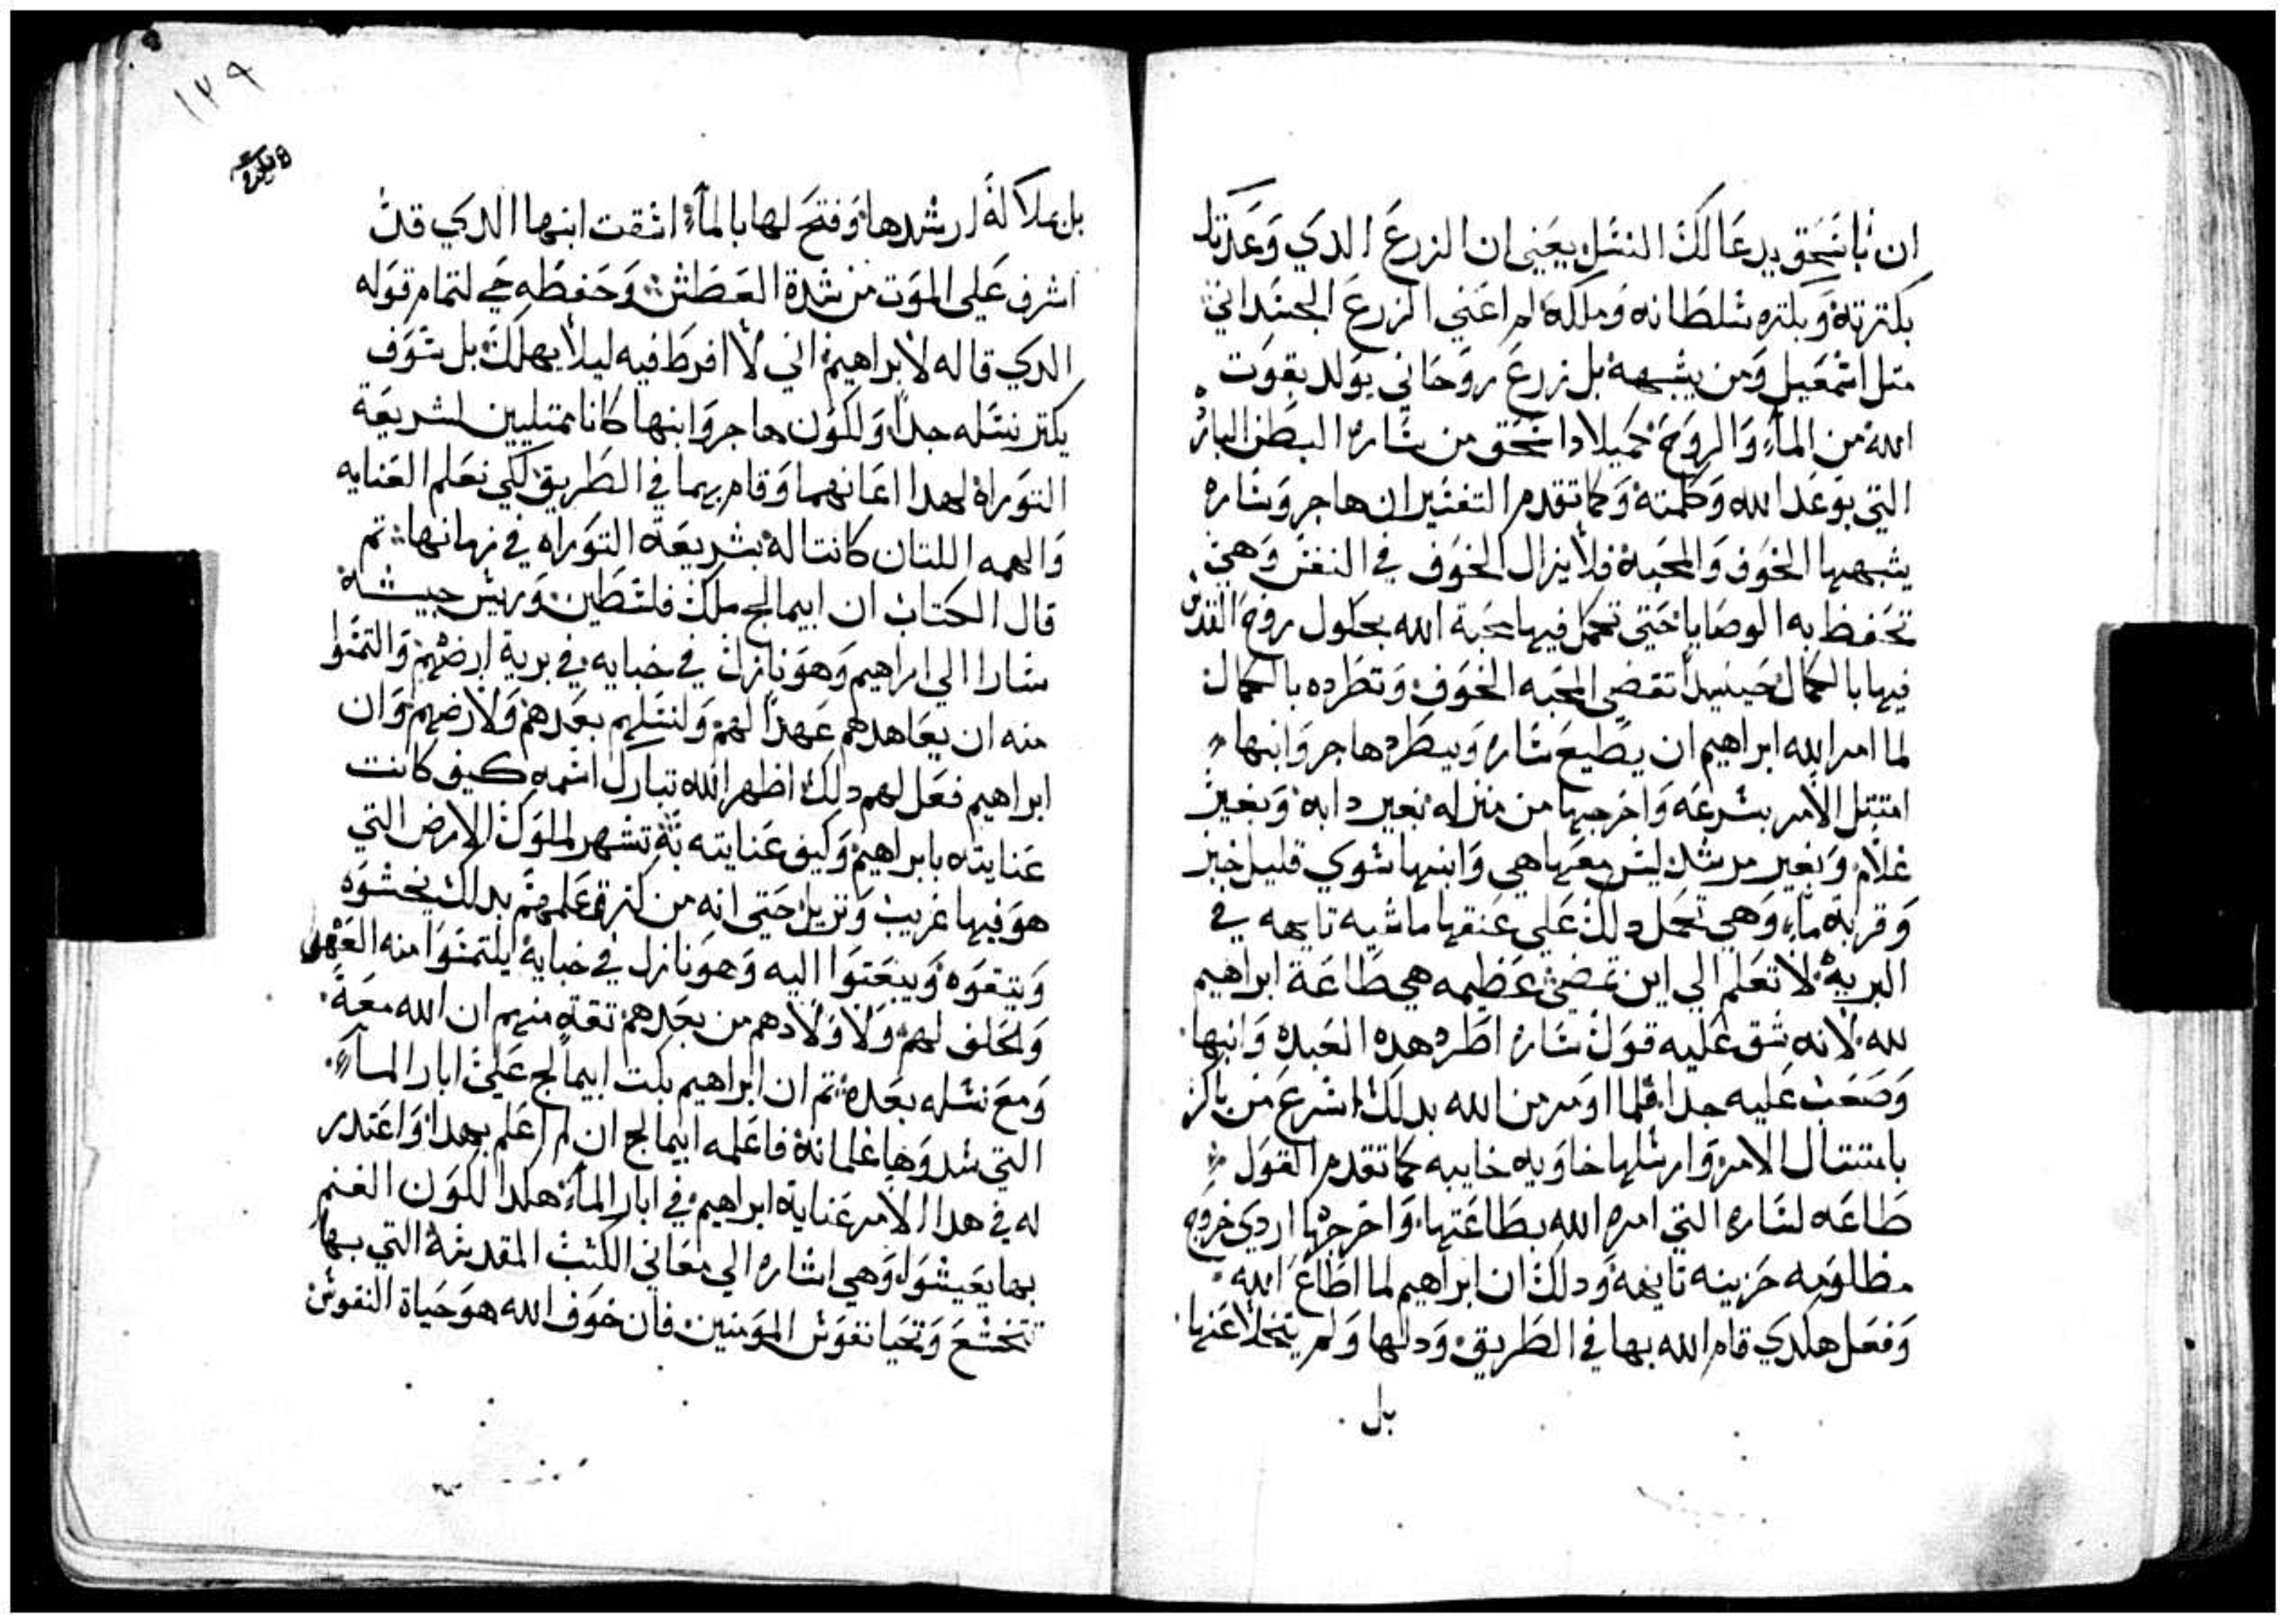 ان باسحق يدعا لك النسل يعني ان الزرع الدي وعدتك
بكترته وبكتره سلطانه وملكه لم اعني الزرع الجسداني
متل اسمعيل ومن يشبهه بل زرع روحاني يولد بقوت
الله من الماء والروح كميلاد اسحق من ساره البطن البائره
التي بوعد الله وكلمته وكما تقدم التفسير ان هاجر وساره
يشبهها الخوف والمحبة فلا يزال الخوف في النفس وهي
تحفظ به الوصايا حتى تكمل فيها محبة الله بحلول روح القدس
فيها بالكمال حينيدا تقضي المحبه الخوف وتطرده بالكمال
لما امر الله ابراهيم ان يطيع ساره ويطرد هاجر وابنها
امتتل الامر بسرعه واخرجها من منزله بغير دابه وبغير
غلام وبغير مرشد ليس معها هي وابنها سوي قليل خبز
وقربة ماء وهي تحمل دلك علي عنقها ماشيه تايهه في
البرية لا تعلم الي اين تمضي عظيمه هي طاعة ابراهيم
لله لانه شق عليه قول ساره اطرد هده العبده وابنها
وصعب عليه جدا فلما اومر من الله بدلك اسرع من باكر
بامتتال الامر وارسلها خاويه خايبه كما تقدم القول
طاعه لساره التي امره الله بطاعتها واخرجها اردي خروج
مظلومه حزينه تايهه ودلك ان ابراهيم لما اطاع الله
وفعل هكدي قام الله بها في الطريق ودلها ولم يتخلا عنها
بل
١٢٩
بل بملاكه ارشدها وفتح لها بالماء اسقت ابنها الدي قد
اشرف علي الموت من شدة العطش وحفظه حي لتمام قوله
الدي قاله لابراهيم اني لا افرط فيه ليلا يهلك بل سوف
يكتر نسله جدا ولكون هاجر وابنها كانا ممتليين لشريعة
التوراة لهدا اعانهما وقام بهما في الطريق لكي نعلم العنايه
والهمه اللتان كانتا له بشريعة التوراه في زمانها تم
قال الكتاب ان ابيمالخ ملك فلسطين وريس جيشه
سارا الي ابراهيم وهو نازل في خبايه في برية ارضهم والتمسوا
منه ان يعاهدهم عهدا لهم ولنسلهم بعدهم ولارضهم وان
ابراهيم فعل لهم دلك اظهر الله تبارك اسمه كيف كانت
عنايته بابراهيم وكيف عنايته به تشهر لملوك الارض التي
هو فيها غريب ونزيل حتى انه من كترة علمهم بدلك يخشوه
ويتقوه ويبعتوا اليه وهو نازل في خبايه يلتمسوا منه العهد
ولحلف لهم ولاولادهم من بعدهم تقه منهم ان الله معه
ومع نسله بعده تم ان ابراهيم بكت ابيمالخ علي ابار الماء
التي سدوها غلمانه فاعلمه ابيمالخ ان لم اعلم بهدا واعتدر
له في هدا الامر عناية ابراهيم في ابار الماء هكدا لكون الغنم
بها يعيشوا وهي اشاره الي معاني الكتب المقدسة التي بها
تخشع وتحيا نفوس المومنين فان خوف الله هو حياة النفوس